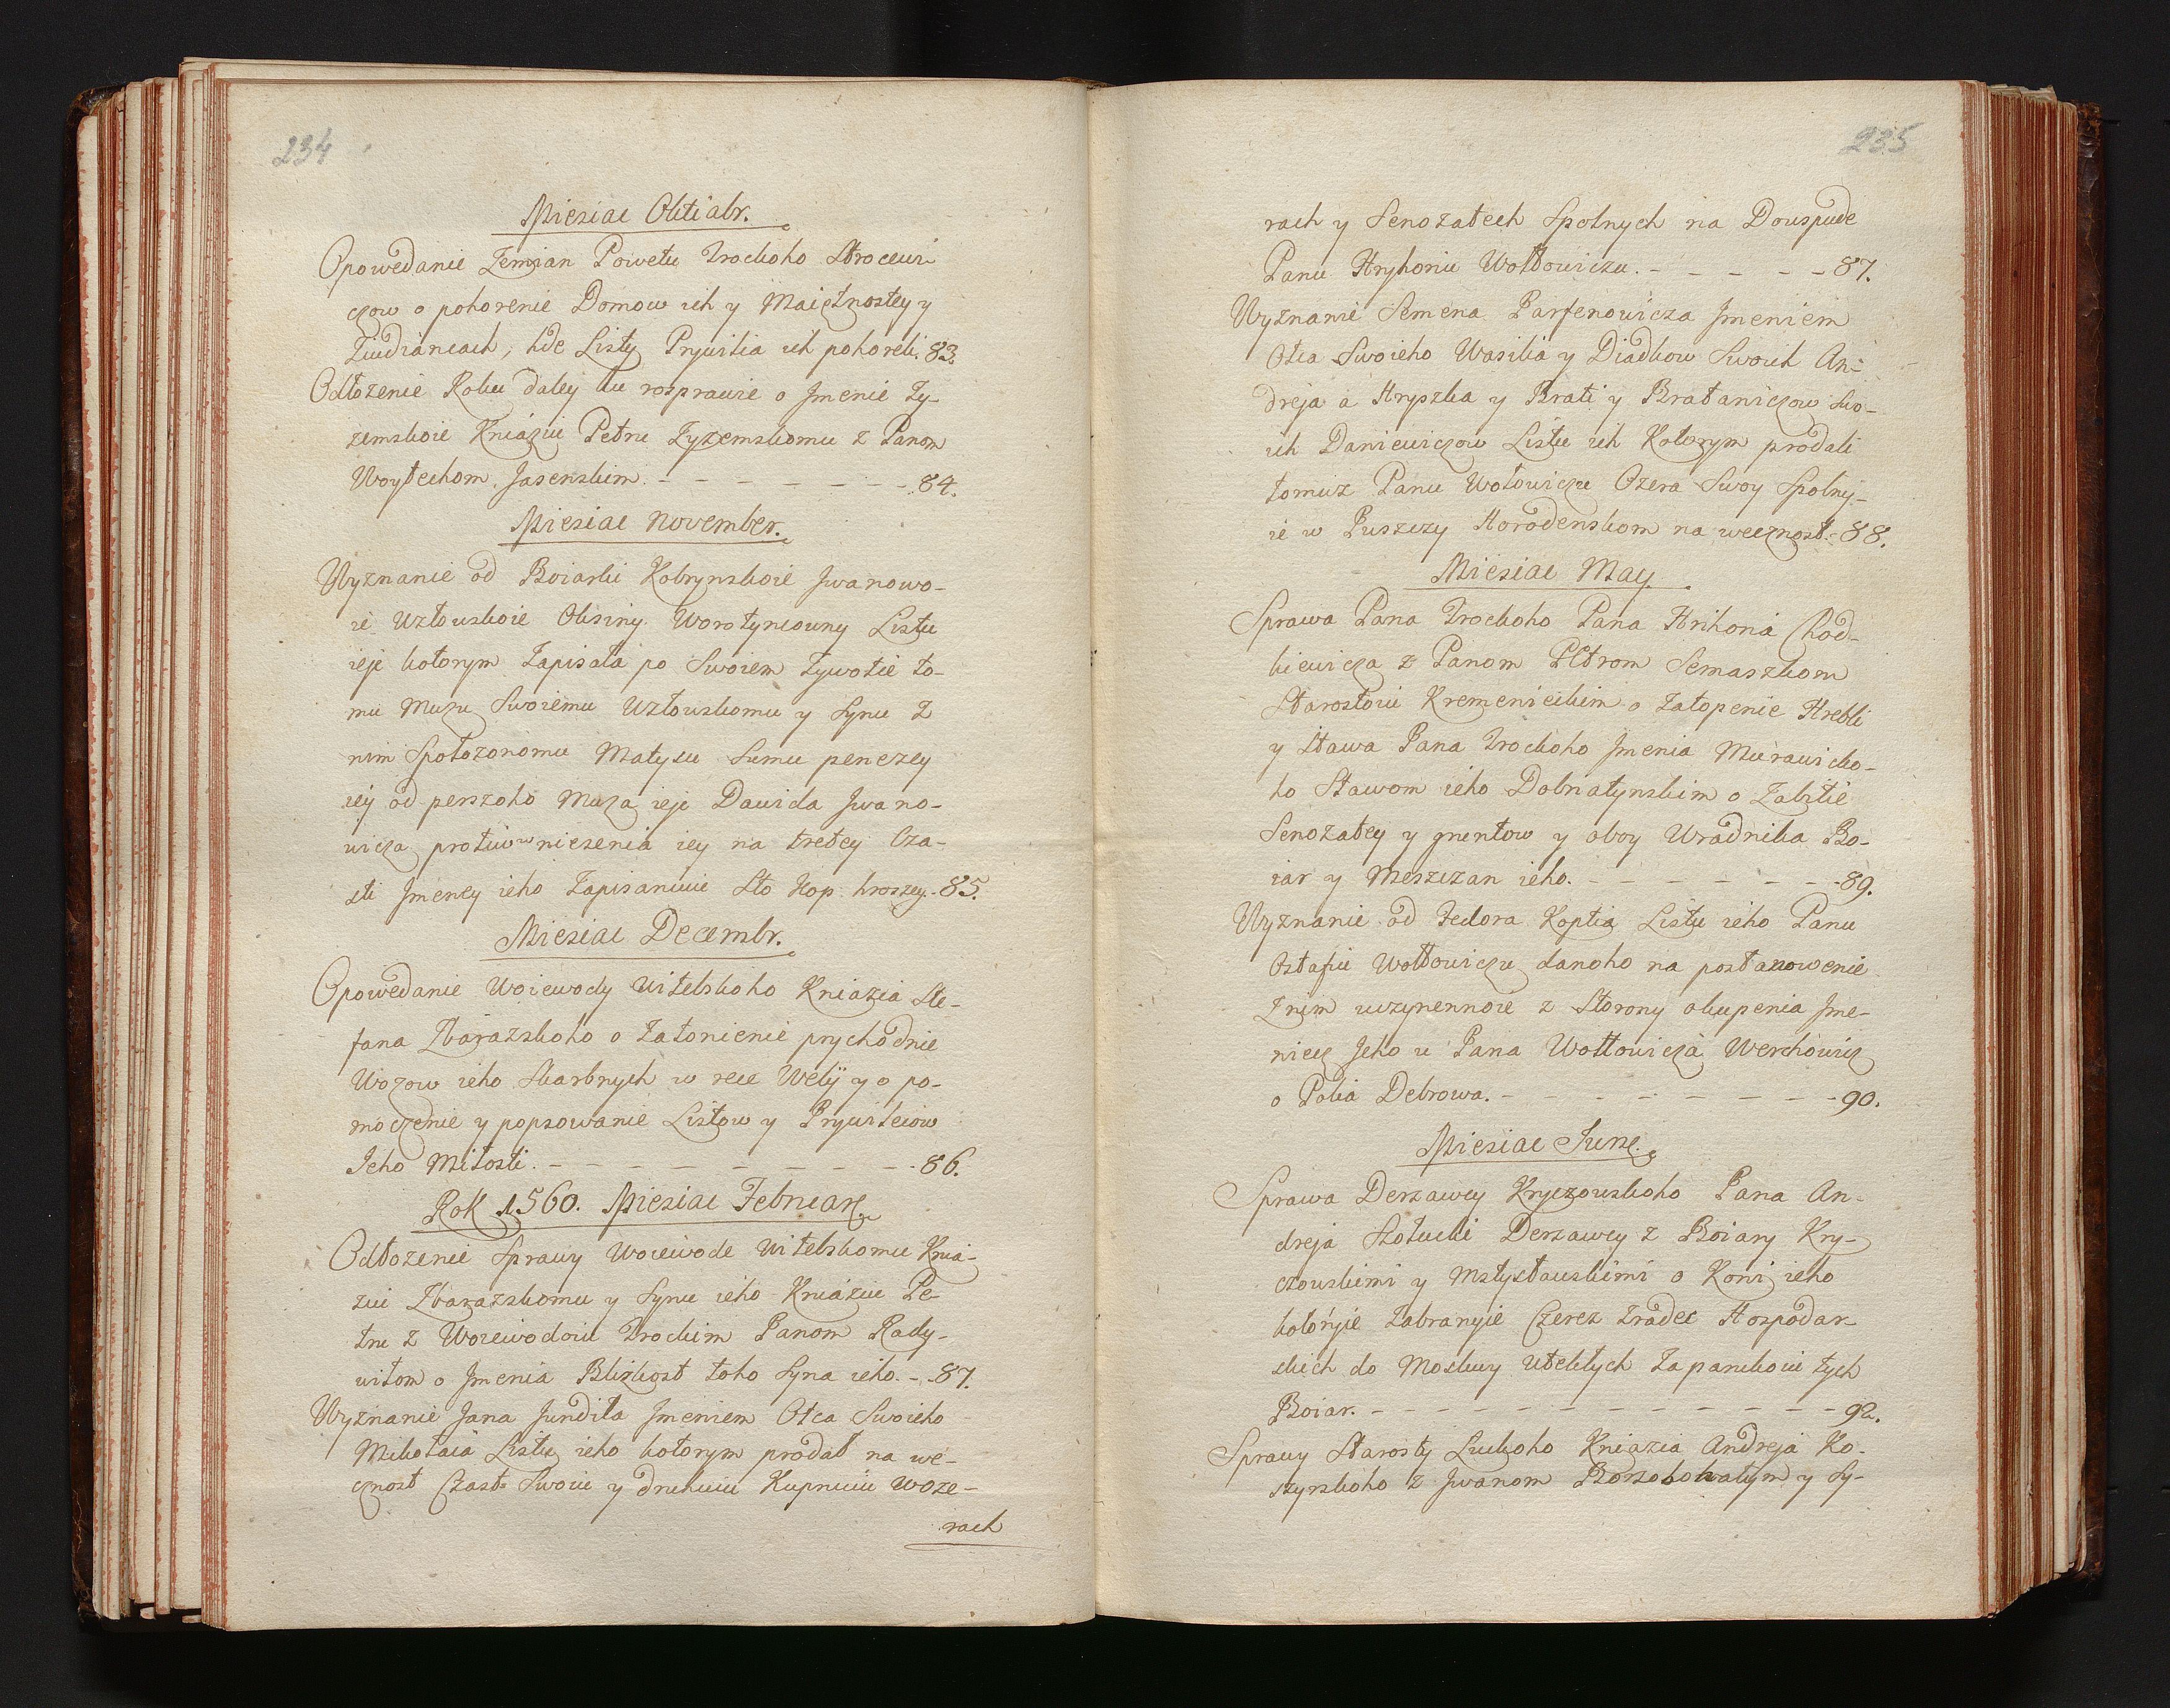 234
Miesiac Oktiabr.
Opowedanie Zemian Powetu Trockoho Strocewi-
czow o pohorenie Domow ich y Maiętnostey y
Ziudiancach, hde Listy Prywilia ich pohoreli. 83.
Odłozenie Roku daley ku rosprawie o Jmenie Zy-
zemskoie Kniaziu Petru Zyzemskomu z Panom
Woytechom Jasenskim. - - - - - - - 84.
Miesiac November.
Wyznanie od Boiarki Kobrynskoie Jwanowo-
ie Uzłouskoie Oksiny Worotyncouny Listu
ieje kotorym Zapisała po Swoiem Zywotie to-
mu Muzu Swoiemu Uzłouskomu y Synu Z
nim Społozonomu Matysu Sumu penezey
iey od perszoho Muza ieje Dawida Jwano-
wicza protiw wniesenia iey na tretey Cza-
sti Jmeney ieho Zapisanuie Sto Kop hroszey. 85.
Miesiac Decembr.
Opowedanie Woiewody Witebskoho Kniazia Ste-
fana Zbarazskoho o Zatonienie prychodnie
Wozow ieho Skarbnych w rece Welÿ y o po-
moczenie y popsowanie Listow y Prywilеiow
Jeho Miłosti. - - - - - - - - 86.
Rok 1560. Miesiac Februar.
Odłozenie Sprawy Woiewode Witebskomu Knia-
ziu Zbarazskomu y Synu ieho Kniaziu Pe-
tru z Woiewodoiu Trockim Panom Rady-
wiłom o Jmenia Blizkost toho Syna ieho. - 87.
Wyznanie Jana Jundiła Jmeniem Otca Swoieho
Mikołaia Listu ieho kotorym prodał na we-
cznost Czast Swoiu y druhuiu Kupnuiu woze-
rach
235
rach y Senozatech Spolnych na Douspude
Panu Hryhoriu Wołłowiczu. - - - - - 87.
Wyznanie Semena Parfenowicza Jmeniem
Otca Swoieho Wasilia y Diadkow Swoich An-
dreja a Hryszka y Brati y Brataniczow Swo-
ich Daniewiczow Listu ich Kotorym prodali
tomuz Panu Wołowiczu Ozera Swoy Spolny-
ie w Puszczy Horodenskom na wecznost. 88.
Miesiac May.
Sprawa Pana Trockoho Pana Hrihoria Chod-
kiewicza z Panom Petrom Semaszkom
Starostoiu Kremenieckim o Zatopenie Hrebli
y Stawa Pana Trockoho Jmenia Murawicko-
ho Stawom ieho Dobriatynskim o Zabitie
Senozatey y gruntow y oboy Uradnika Bo-
iar y Meszczan ieho. - - - - - - 89.
Wyznanie od Fedora Koptia Listu ieho Panu
Ostafiu Wołłowiczu danoho na postanowenie
Znim uczynennoie z Storony okupenia Jme-
niey Jeho u Pana Wołłowicza Werchowicz
o Polia Debrowa. - - - - - - - 90.
Miesiac June.
Sprawa Derzawcy Kryczouskoho Pana An-
dreja Szołuchi Derzawcy z Boiary Kry-
czouskimi y Mstysłauskimi o Koni ieho
kotoryie Zabranyie Czerez Zradec Hospodar-
skich do Moskwy utekłych Zapanikoiu tych
Boiar. - - - - - - - - - 92.
Sprawy Starosty Luckoho Kniazia Andreja Ko-
szyrskoho z Jwanom Borzobohatym y Sy-